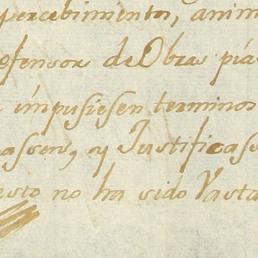 percebimiento, anim
efensor de Obras pia
impusiesen terminos
assen, y Justificase
esto no ha sido Vasta